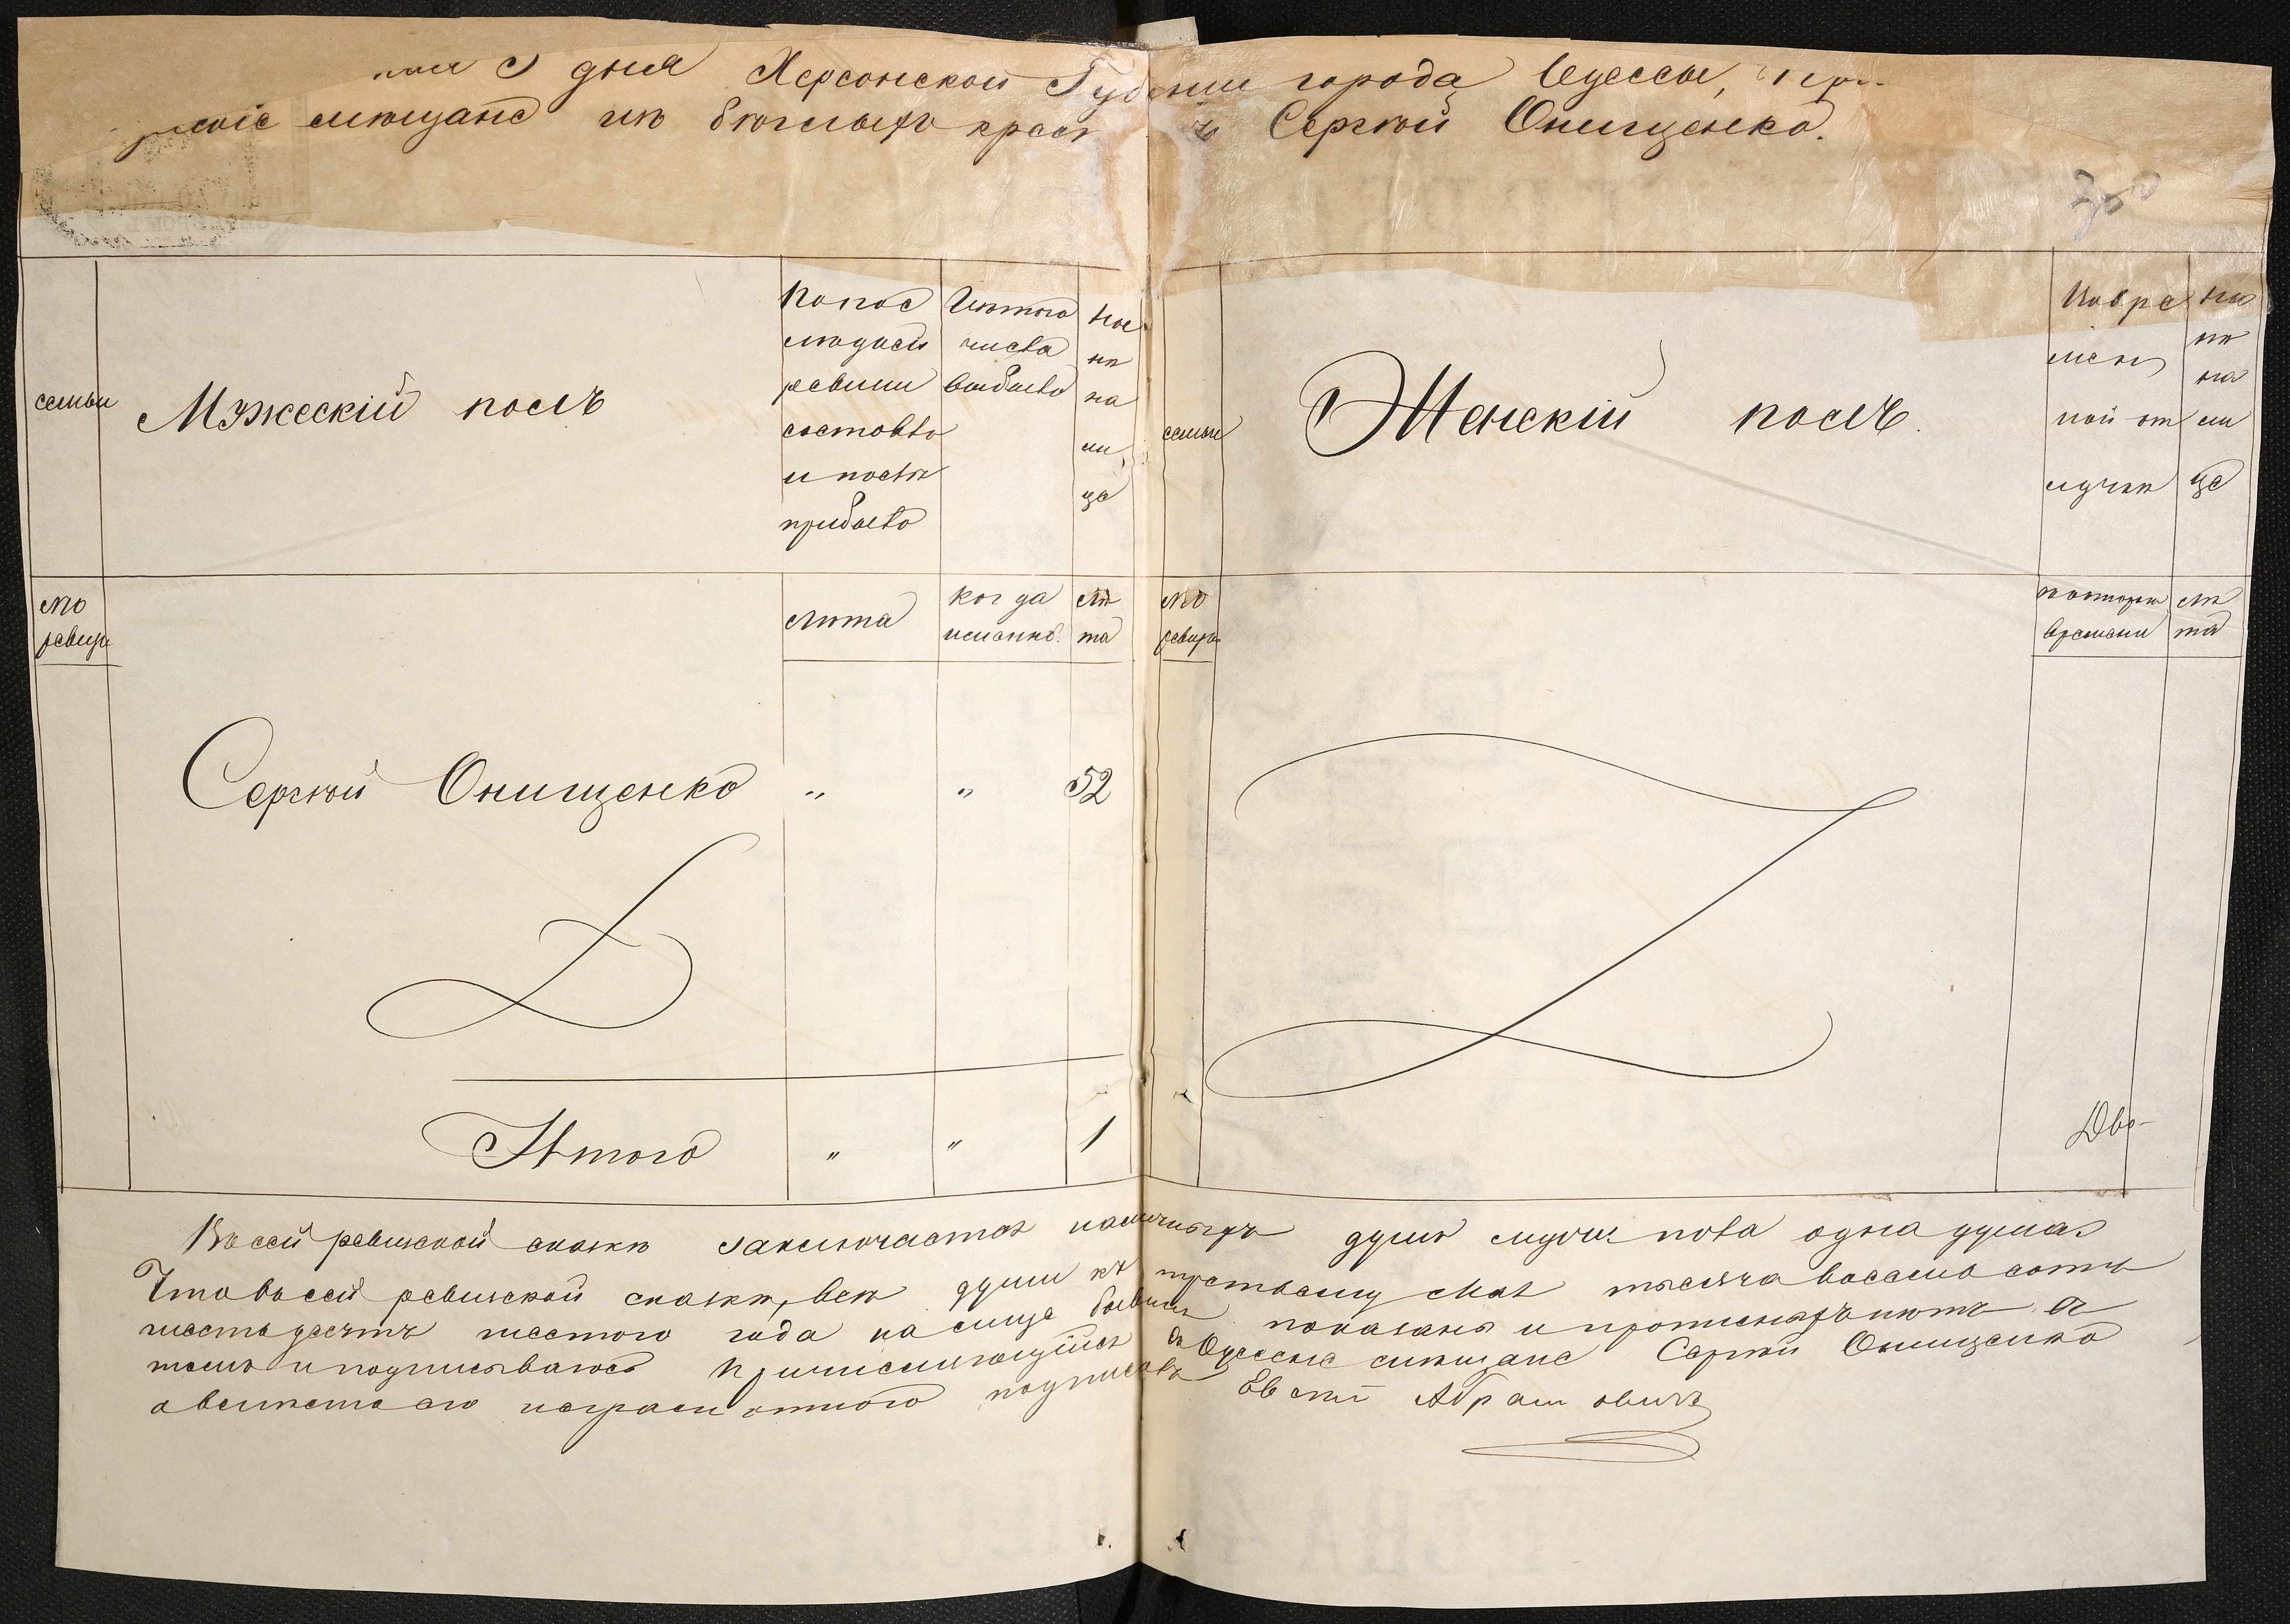 дня Херсонской Губернии города Одессы,
мѣщане изъ бѣглыхъ Сергѣй Онищенко.
семьи
Мужескій полъ
По пос
лѣдней
ревизіи
состояло
и послѣ
прибыло
Изтого
числа
выбыло
Ны
нѣ
на
ли
це
семьи
Женскій полъ.
Во вре
мен
ной от
лучкѣ
Ны
нѣ
на
ли
це
№
ревиз
лѣта
когда
именно.
лѣ
та
№
ревиз
времени
лѣ
та
Сергѣй Онищенко " " 52
Итого " " 1
Въ сей ревизской сказкѣ заключается наличныхъ душъ мужс пола одна душа
Что въ сей ревизской сказкѣ, всѣ души къ первому Мая тысяча восемь сотъ
шестьдесятъ шестого года на лице бывшія показаны и прописныхъ нѣтъ въ
томъ и подписываюсь Причисляющійся въ Одесскіе мѣщане Сергѣй Онищенко
а вмѣсто его неграмотного подписалъ Абрамовичъ